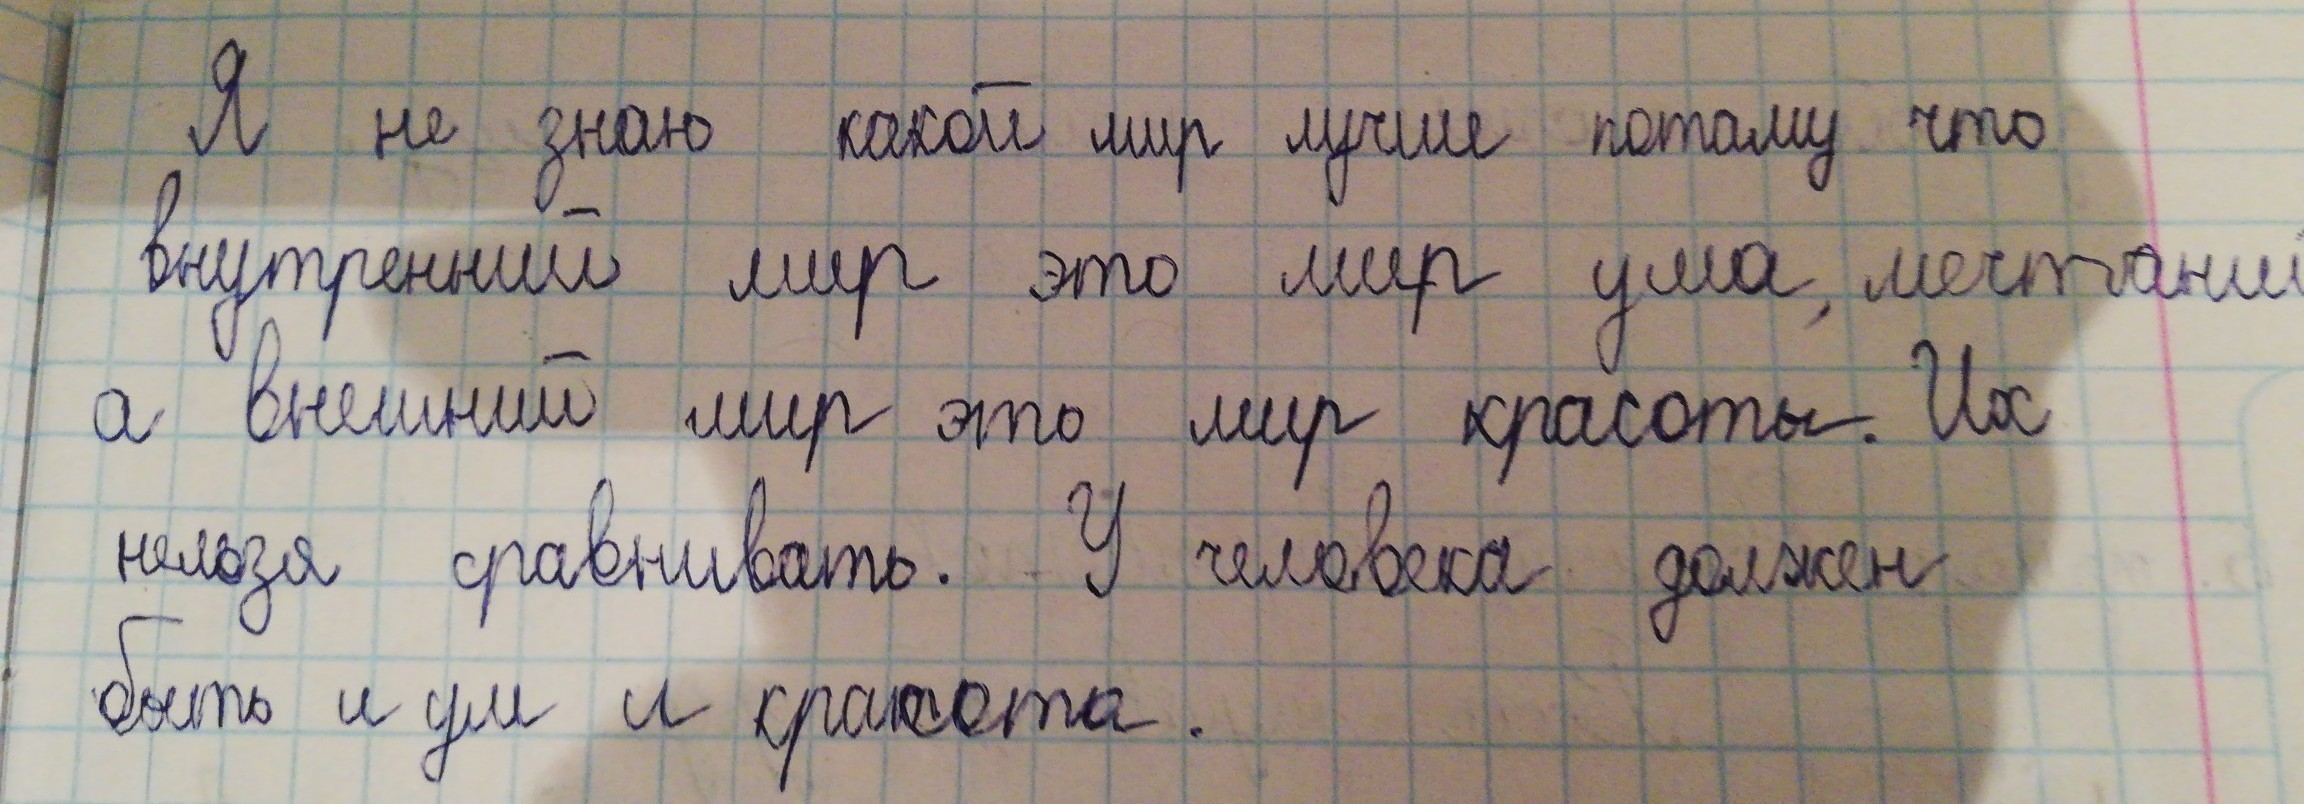 Я не знаю какой мир лучше потому что
внутренний мир это мир ума, мечтаний
а внешний мир это мир красоты. Их
нельзя сравнивать. У человека должен
быть и ум и красота.